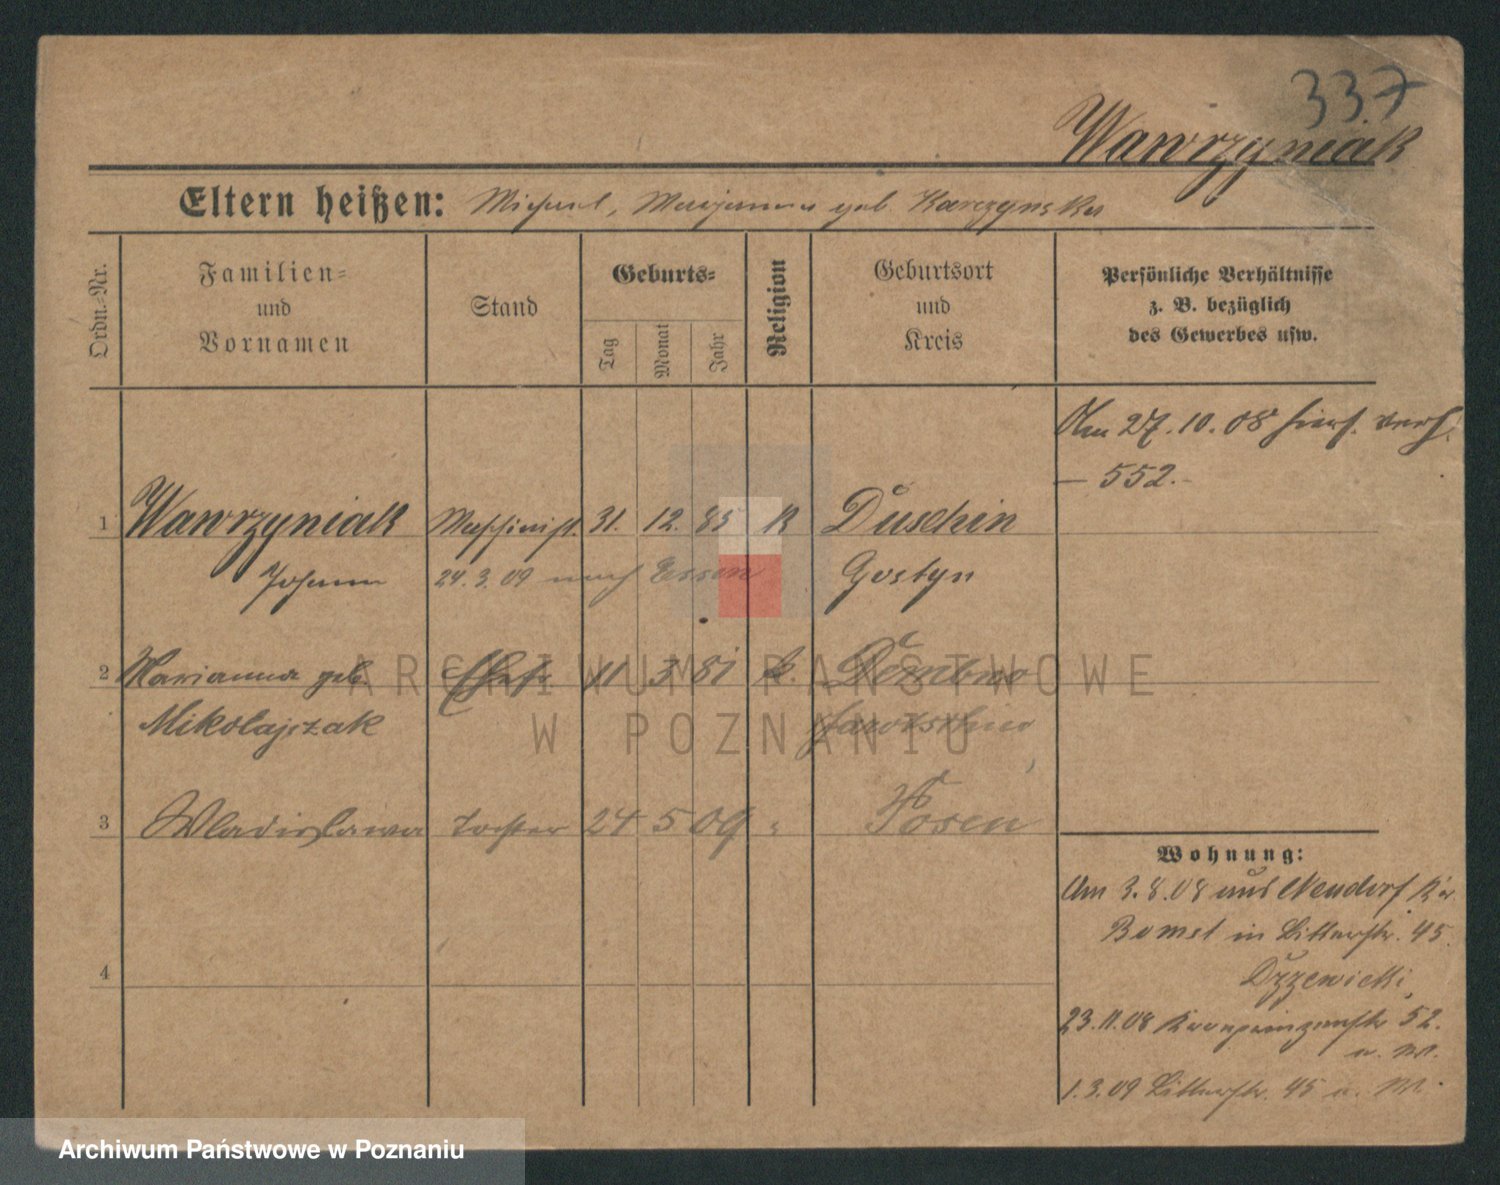 337
Wawrzyniak
Eltern heißen: Michael, Marjanna geb. Karczynska
Ordn.-Nr.
Familien-
und
Vornamen
Stand
Geburts-
Tag
Monat
Jahr
Religion
Geburtsort
und
Kreis
Persönliche Verhältnisse
z. B. bezüglich
des Gewerbes usw.
Am 27.10.08 hier verh.
- 552.-
1 Wawrzyniak Maschinist. 31. 12. 85 K Duschin
Johann 24.3.09 nach Essen Gostyn
2 Marianna geb. Ehefr 11 3 81 k. Dembno
Mikołajczak Jarotschin
3 Wladislawa Tochter 24 5 09 " Posen
4
Wohnung:
Am 3.8.08 aus Neudorf Kr.
Bomst in Bitterstr. 45
23.11.08 Kronprinzenstr 52.
a. M.
1.3.09 Bitterstr. 45 a. M.
ARCHIWUM PAŃSTWOWE
W POZNANIU
Archiwum Państwowe w Poznaniu